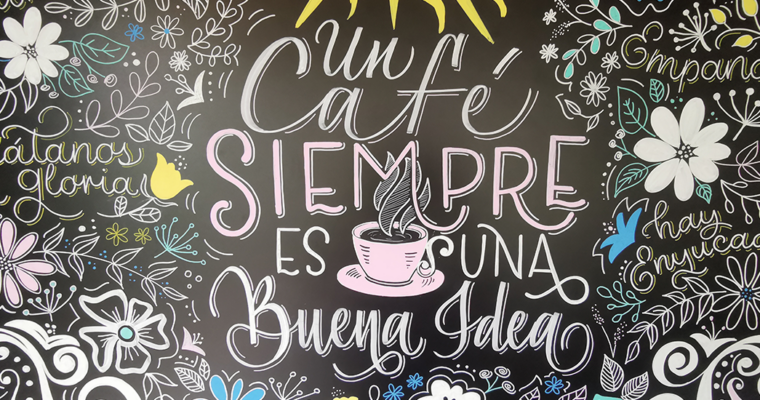 Un
Café
SIEMPRE
ES UNA
Buena Idea
Empana
átanos
gloria
hay
Enyuca